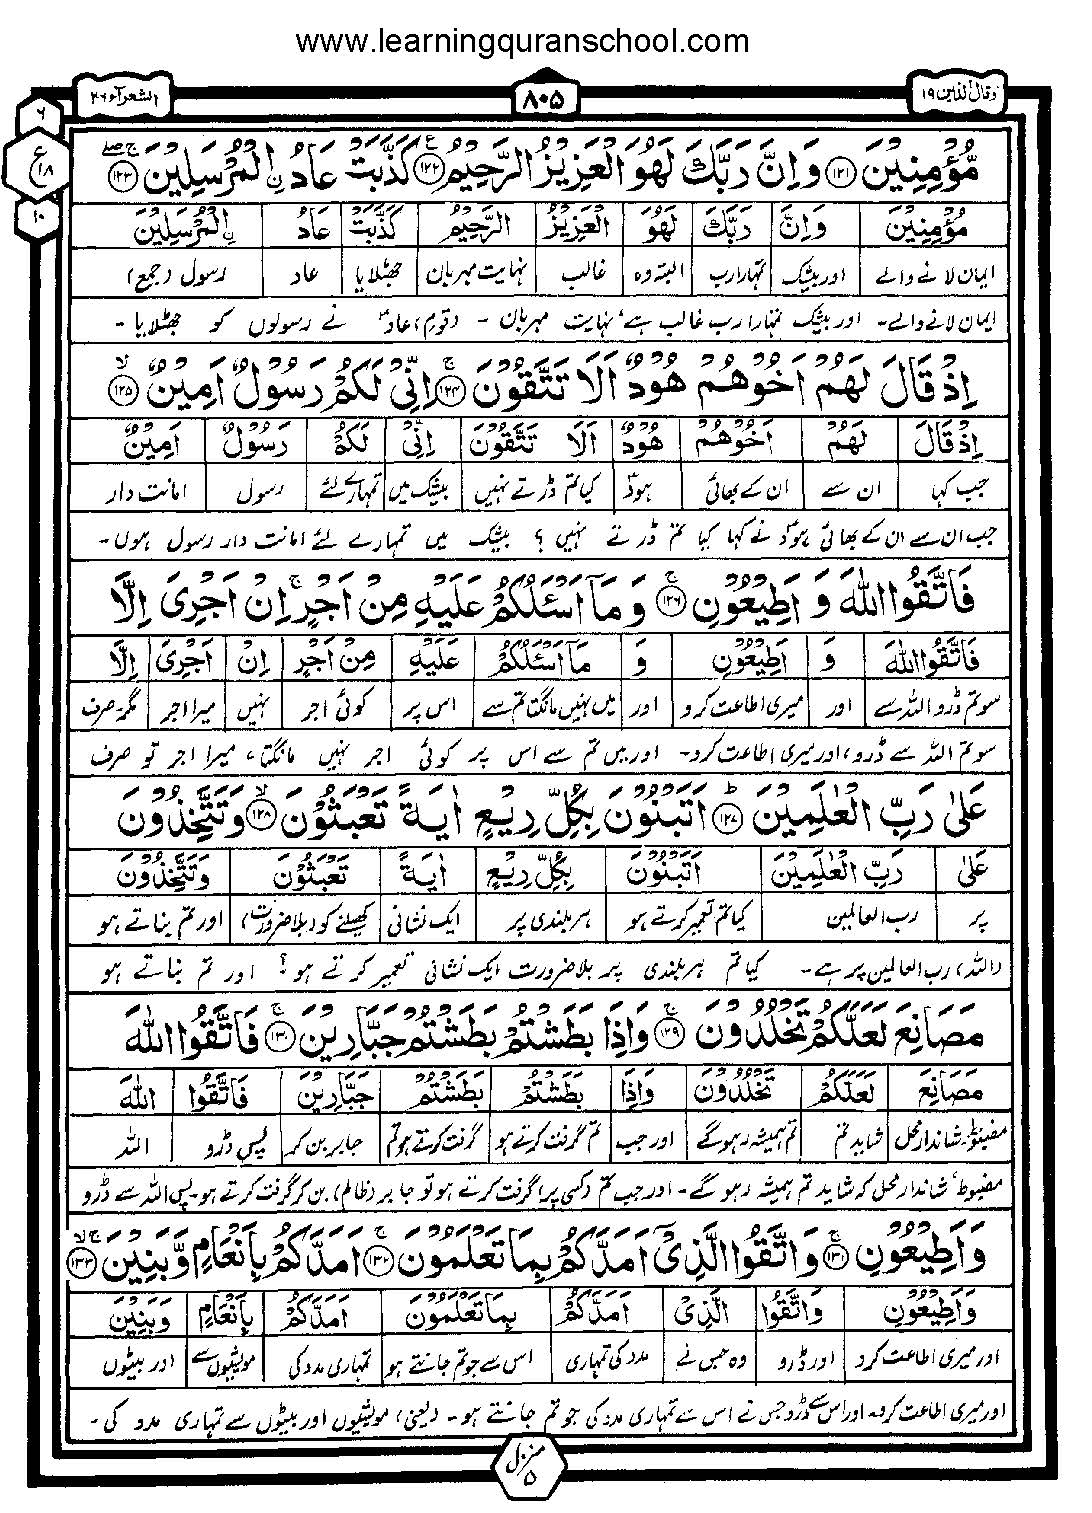 www.learningquranschool.com
وقال الذین ۱۹
۸۰۵
الشعرآء ۲۶
۶
ع
۱۸
۱۰
مُّؤْمِنِيْنَ ۝۱۲۱ وَاِنَّ رَبَّكَ لَهُوَ الْعَزِيْزُ الرَّحِيْمُ ۝۱۲۲ كَذَّبَتْ عَادُ ِ۟الْمُرْسَلِيْنَ ۝۱۲۳
مُّؤْمِنِيْنَ وَاِنَّ رَبَّكَ لَهُوَ الْعَزِيْزُ الرَّحِيْمُ كَذَّبَتْ عَادُ ِ۟الْمُرْسَلِيْنَ
ایمان لانے والے اور بیشک تمہارا رب البتہ وہ غالب نہایت مہربان جھٹلایا عاد رسول (جمع)
ایمان لانے والے۔ اور بیشک تمہارا رب غالب ہے، نہایت مہربان ۔ (قوم) عاد نے رسولوں کو جھٹلایا ۔
اِذْ قَالَ لَهُمْ اَخُوْهُمْ هُوْدٌ اَلَا تَتَّقُوْنَ ۝۱۲۴ اِنِّىْ لَكُمْ رَسُوْلٌ اَمِيْنٌ ۝۱۲۵
اِذْ قَالَ لَهُمْ اَخُوْهُمْ هُوْدٌ اَلَا تَتَّقُوْنَ اِنِّىْ لَكُمْ رَسُوْلٌ اَمِيْنٌ
جب کہا ان سے ان کے بھائی ہودؑ کیا تم ڈرتے نہیں بیشک میں تمہارے لئے رسول امانت دار
جب ان سے ان کے بھائی ہودؑ نے کہا کیا تم ڈرتے نہیں ؟ بیشک میں تمہارے لئے امانت دار رسول ہوں۔
فَاتَّقُوا اللّٰهَ وَ اَطِيْعُوْنِ ۝۱۲۶ وَ مَاۤ اَسْـَٔلُكُمْ عَلَيْهِ مِنْ اَجْرٍ ۚ اِنْ اَجْرِىَ اِلَّا
فَاتَّقُوا اللّٰهَ وَ اَطِيْعُوْنِ وَ مَاۤ اَسْـَٔلُكُمْ عَلَيْهِ مِنْ اَجْرٍ اِنْ اَجْرِىَ اِلَّا
سو تم ڈرو اللہ سے اور میری اطاعت کرو اور میں نہیں مانگتا تم سے اس پر کوئی اجر نہیں میرا اجر مگر صرف
سو تم اللہ سے ڈرو، اور میری اطاعت کرو۔ اور میں تم سے اس پر کوئی اجر نہیں مانگتا، میرا اجر تو صرف
عَلٰى رَبِّ الْعٰلَمِيْنَ ۝۱۲۷ اَتَبْنُوْنَ بِكُلِّ رِيْعٍ اٰيَةً تَعْبَثُوْنَ ۝۱۲۸ وَتَتَّخِذُوْنَ
عَلٰى رَبِّ الْعٰلَمِيْنَ اَتَبْنُوْنَ بِكُلِّ رِيْعٍ اٰيَةً تَعْبَثُوْنَ وَتَتَّخِذُوْنَ
پر رب العالمین کیا تم تعمیر کرتے ہو ہر بلندی پر ایک نشانی کھیلنے کو (بلا ضرورت) اور تم بناتے ہو
(اللہ) رب العالمین پر ہے۔ کیا تم ہر بلندی پر بلا ضرورت ایک نشانی تعمیر کرتے ہو؟ اور تم بناتے ہو
مَصَانِعَ لَعَلَّكُمْ تَخْلُدُوْنَ ۝۱۲۹ وَاِذَا بَطَشْتُمْ بَطَشْتُمْ جَبَّارِيْنَ ۝۱۳۰ فَاتَّقُوا اللّٰهَ
مَصَانِعَ لَعَلَّكُمْ تَخْلُدُوْنَ وَاِذَا بَطَشْتُمْ بَطَشْتُمْ جَبَّارِيْنَ فَاتَّقُوا اللّٰهَ
مضبوط۔ شاندار محل شاید تم تم ہمیشہ رہوگے اور جب تم گرفت کرتے ہو گرفت کرتے ہو تم جابر بن کر پس ڈرو اللہ
مضبوط، شاندار محل کہ شاید تم ہمیشہ رہو گے۔ اور جب تم (کسی پر) گرفت کرتے ہو تو جابر (ظالم) بن کر گرفت کرتے ہو۔ پس اللہ سے ڈرو
وَاَطِيْعُوْنِ ۝۱۳۱ وَاتَّقُوا الَّذِىْۤ اَمَدَّكُمْ بِمَا تَعْلَمُوْنَ ۝۱۳۲ اَمَدَّكُمْ بِاَنْعَامٍ وَّبَنِيْنَ ۝۱۳۳
وَاَطِيْعُوْنِ وَاتَّقُوا الَّذِىْۤ اَمَدَّكُمْ بِمَا تَعْلَمُوْنَ اَمَدَّكُمْ بِاَنْعَامٍ وَّبَنِيْنَ
اور میری اطاعت کرو اور ڈرو وہ جس نے مدد کی تمہاری اس سے جو تم جانتے ہو تمہاری مدد کی مویشیوں سے اور بیٹوں
اور میری اطاعت کرو۔ اور اس سے ڈرو جس نے اس سے تمہاری مدد کی جو تم جانتے ہو۔ (یعنی) مویشیوں اور بیٹوں سے تمہاری مدد کی ۔
منزل
۵